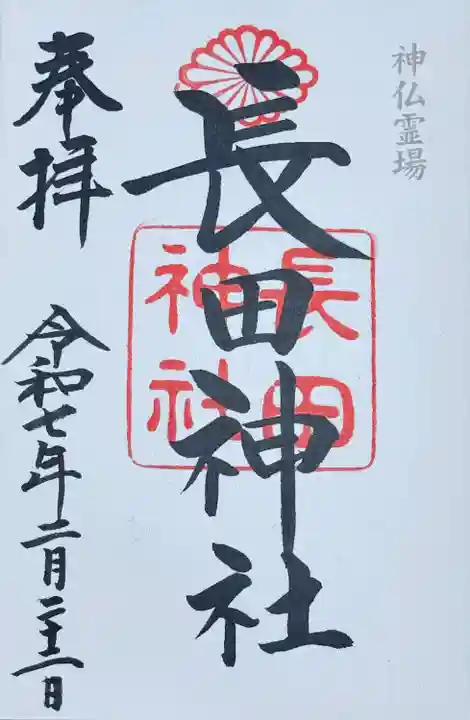 神仏霊場
長田神社
長田
神社
奉拝
令和七年二月二十二日